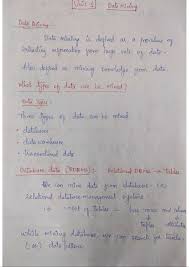 Unit-1 Data Mining
Data Mining
Data Mining is defined as a procedure of
extracting information from huge sets of data.
Also defined as mining knowledge from data.
What types of data can be mined?
Data Types:
Three types of data can be mined
• database
• data warehouse
• transactional data
Database data (RDBMS): Relational DBMS → Tables
We can mine data from database i.e
relational database management systems
set of tables → has rows and columns
tables attributes
while mining database, we may search for trends
(or) data patterns